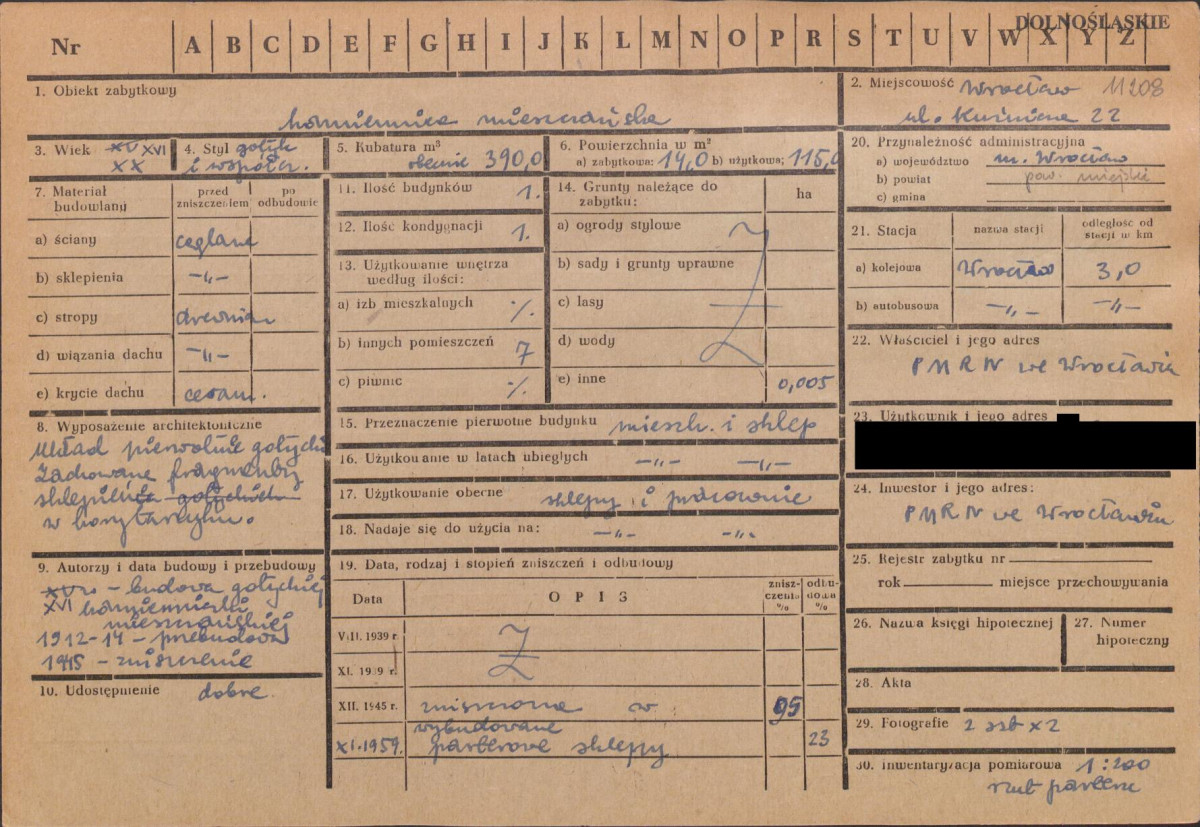 DOLNOŚLĄSKIE
Nr A B C D E F G H I J K L M N O P R S T U V W X Y Z
1. Obiekt zabytkowy
kamienica mieszczańska
2. Miejscowość Wrocław 11208
ul. Kuźnicza 22
3. Wiek XV XVI
XX
4. Styl gotyk
i współcz.
5. Kubatura m³
obecnie 390,0
6. Powierzchnia w m²
a) zabytkowa: 14,0 b) użytkowa; 115,0
7. Materiał budowlany
przed zniszczeniem
po odbudowie
a) ściany ceglane
b) sklepienia -„-
c) stropy drewnian
d) wiązania dachu -„-
e) krycie dachu ceram.
8. Wyposażenie architektoniczne
Układ pierwotnie gotycki
Zachowane fragmenty
sklepienia gotyckich
w korytarzyku.
9. Autorzy i data budowy i przebudowy
XV w – budowa gotyckiej
XVI kamieniczki
mieszczańskiej
1912-14 – przebudowa
1945 – zniszczenie
10. Udostępnienie dobre.
11. Ilość budynków 1.
12. Ilość kondygnacji 1.
13. Użytkowanie wnętrza
według ilości:
a) izb mieszkalnych ·/.
b) innych pomieszczeń 7
c) piwnic ·/.
14. Grunty należące do
zabytku:
ha
a) ogrody stylowe
b) sady i grunty uprawne
c) lasy
d) wody
e) inne 0,005
15. Przeznaczenie pierwotne budynku mieszk. i sklep
16. Użytkowanie w latach ubiegłych -„- -„-
17. Użytkowanie obecne sklepy i pracownie
18. Nadaje się do użycia na: -„- -„-
19. Data, rodzaj i stopień zniszczeń i odbudowy
Data
OPIS
zniszczenia %
odbudowa %
VIII. 1939 r.
XI. 1939 r.
XII. 1945 r. zniszczona w 95
wybudowane
XI.1959. parterowe sklepy 23
20. Przynależność administracyjna
a) województwo m. Wrocław
b) powiat pow. miejski
c) gmina
21. Stacja
nazwa stacji
odległość od
stacji w km
a) kolejowa Wrocław 3,0
b) autobusowa -„- -„-
22. Właściciel i jego adres
PMRN we Wrocławiu
23. Użytkownik i jego adres
24. Inwestor i jego adres:
PMRN we Wrocławiu
25. Rejestr zabytku nr
rok miejsce przechowywania
26. Nazwa księgi hipotecznej
27. Numer
hipoteczny
28. Akta
29. Fotografie 2 szt x 2
30. Inwentaryzacja pomiarowa 1:200
rzut parteru